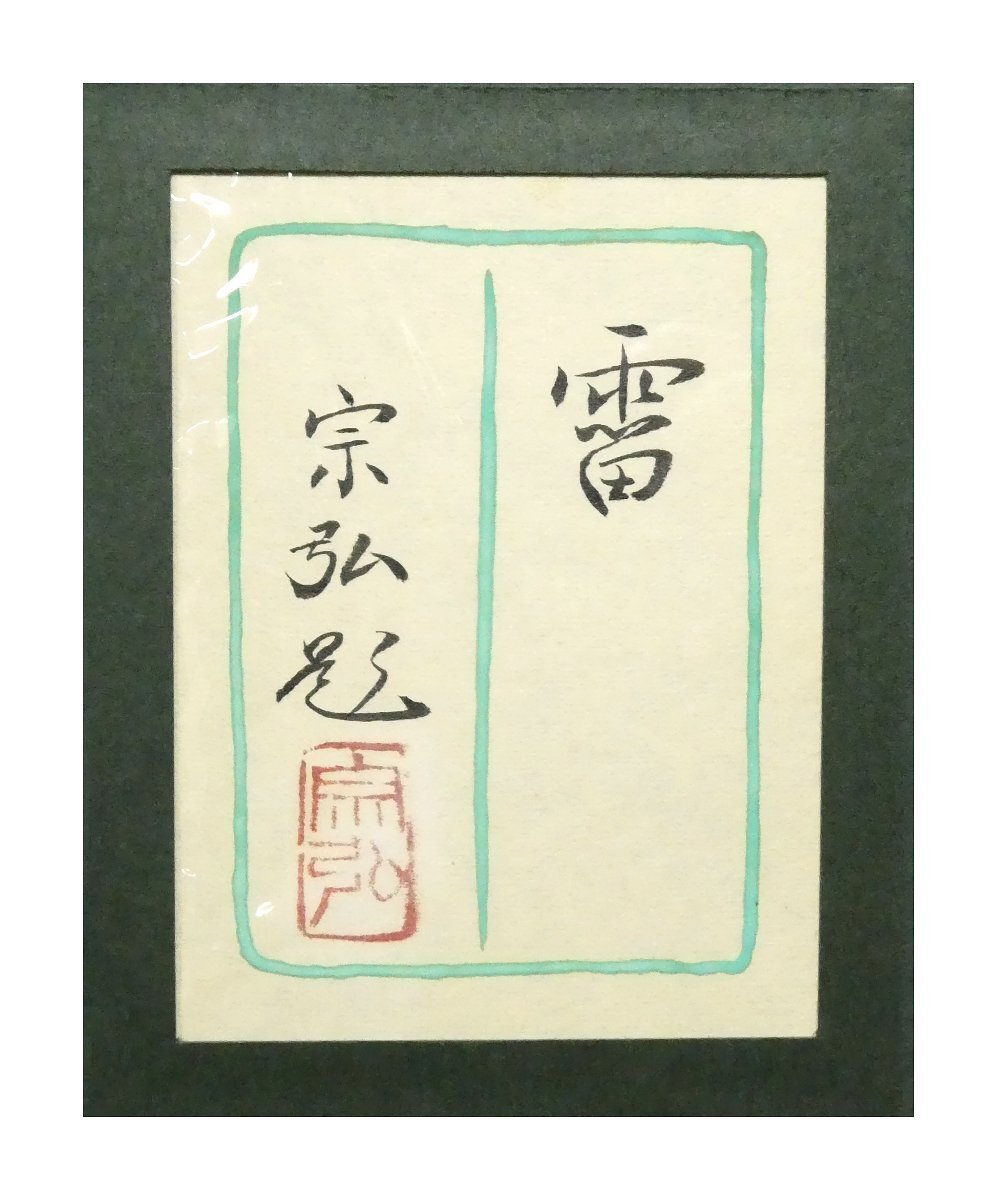 雷
宗弘題
宗弘